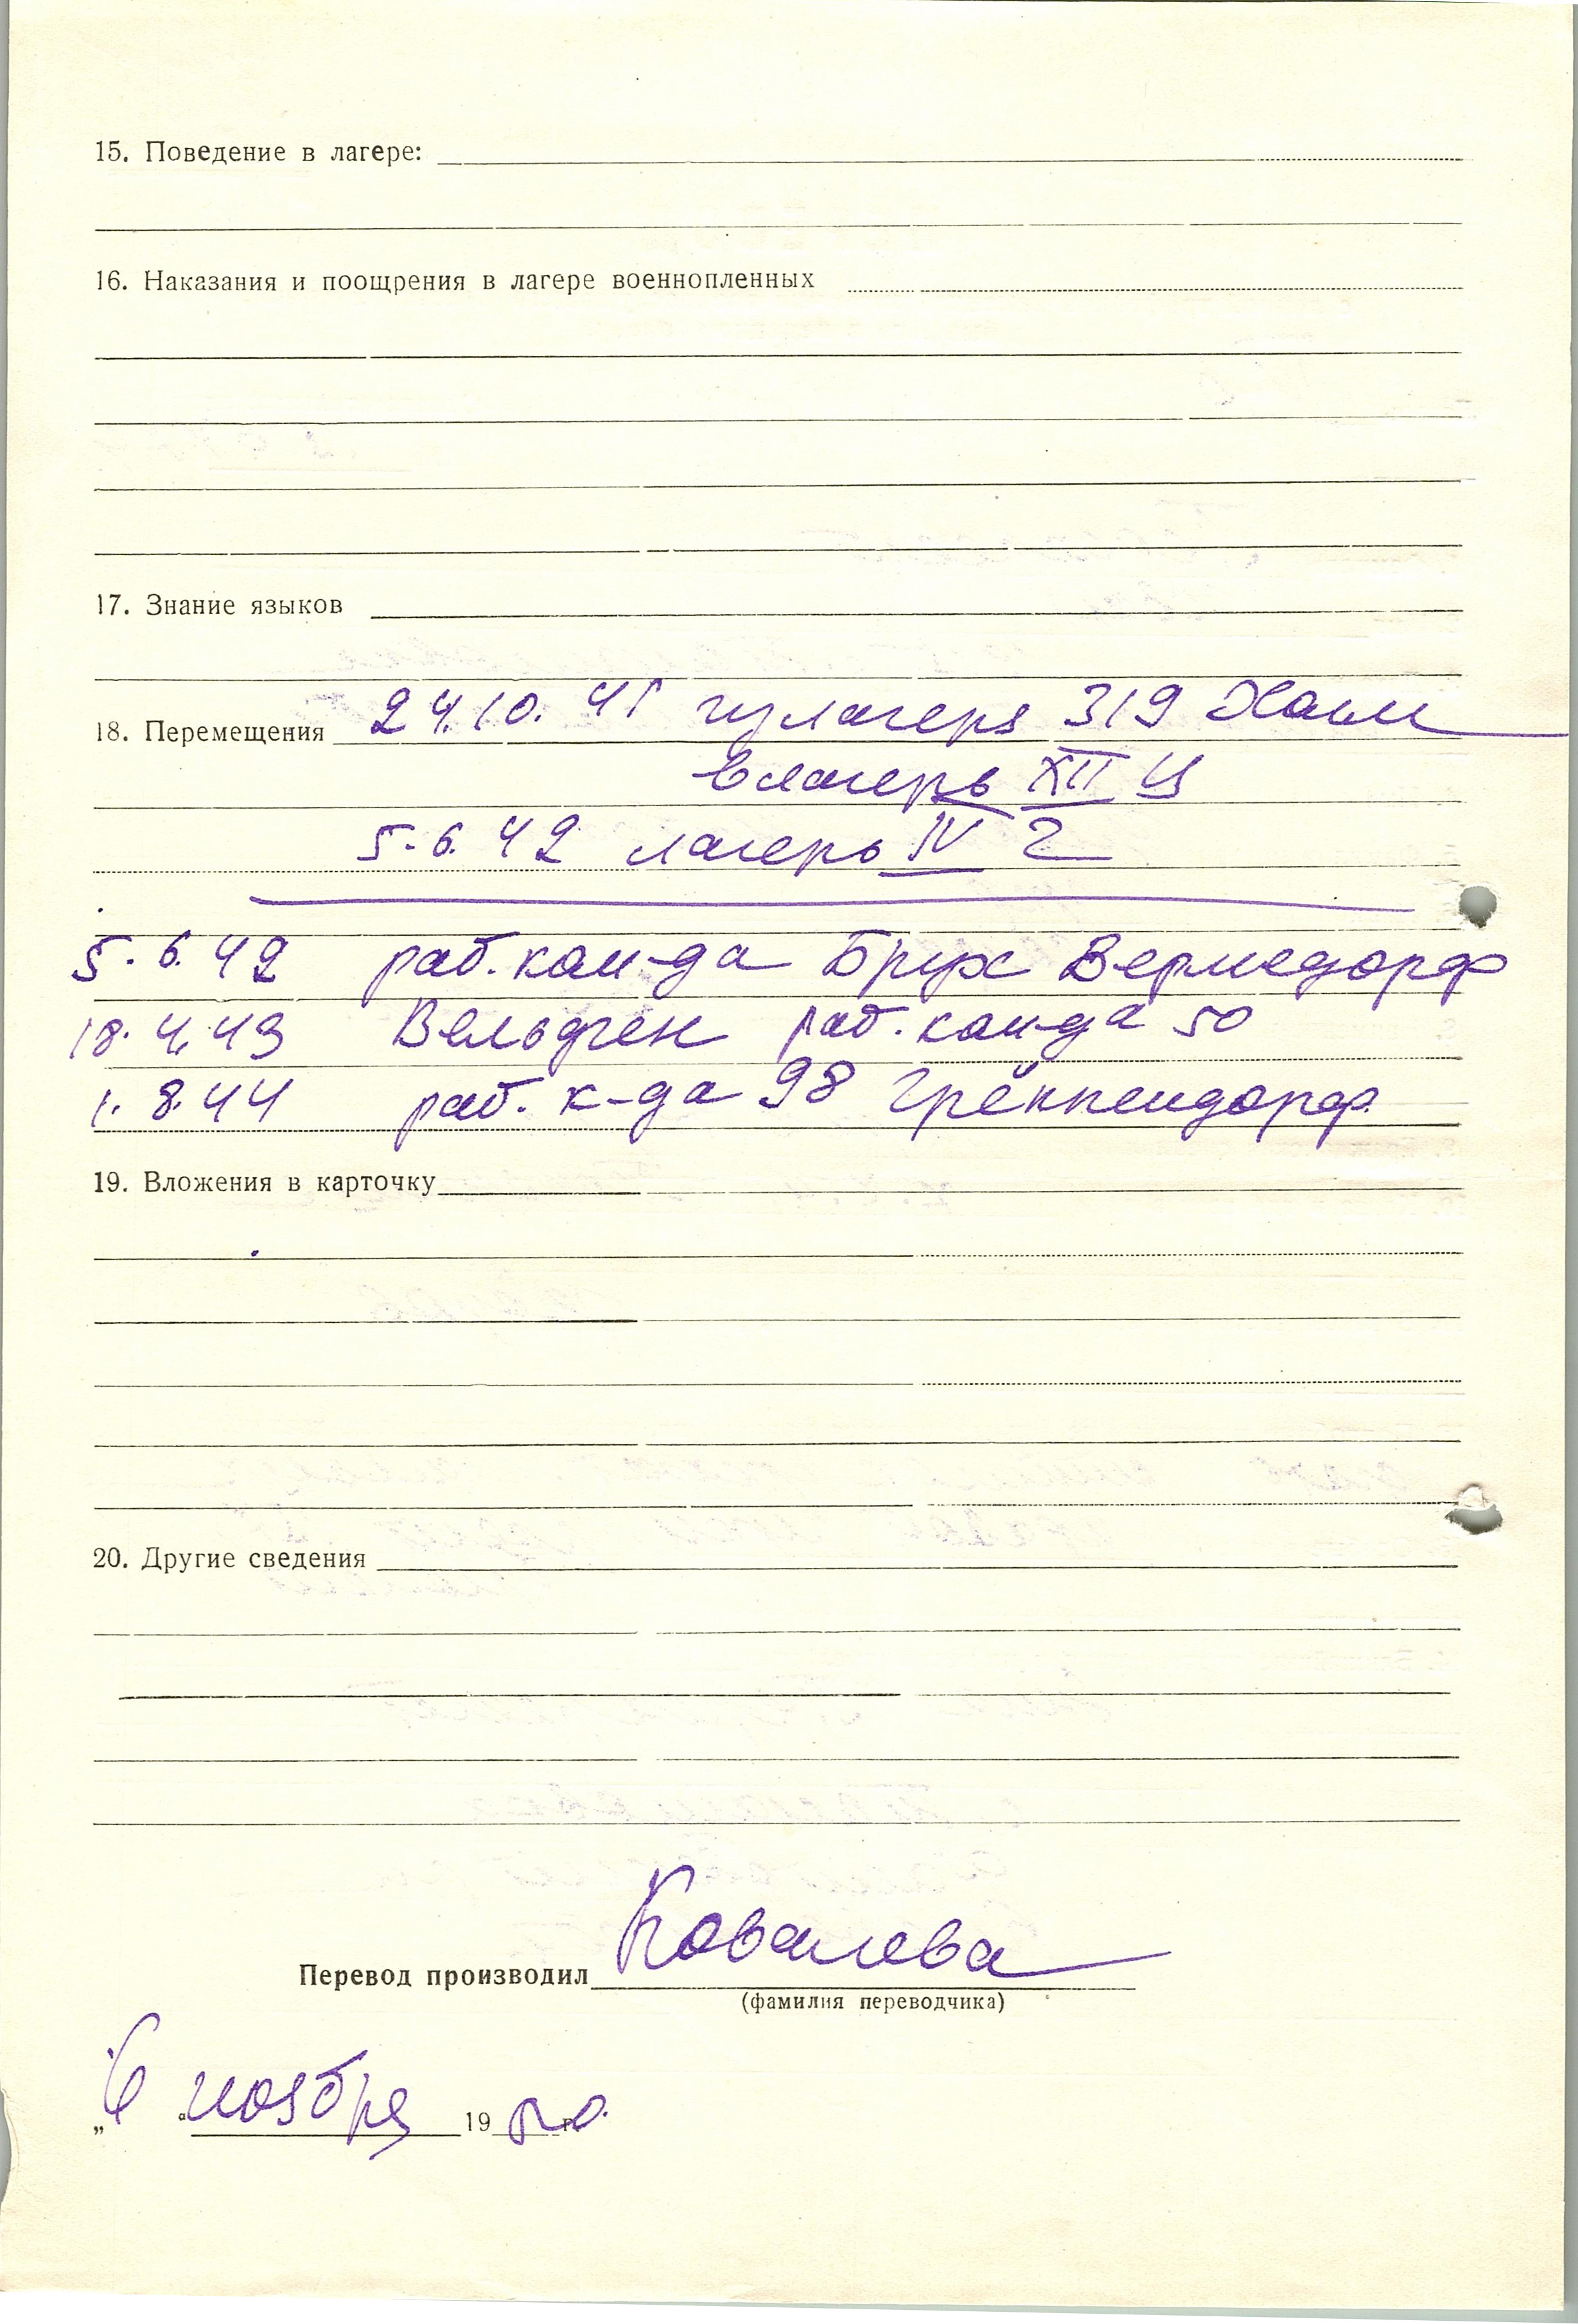 15. Поведение в лагере:
16. Наказания и поощрения в лагере военнопленных
17. Знание языков
18. Перемещения 24.10.41 из лагеря 319 Холм
в лагерь XII Ц
5.6.42 лагерь IV Г
5.6.42 раб. кан-да Брух Вермсдорф
18.4.43 Вельдген раб. кан-да 50
1.8.44 раб. к-да 98 Грёппендорф
19. Вложения в карточку
20. Другие сведения
Перевод производил Ковалева
(фамилия переводчика)
„6“ ноября 19 г.